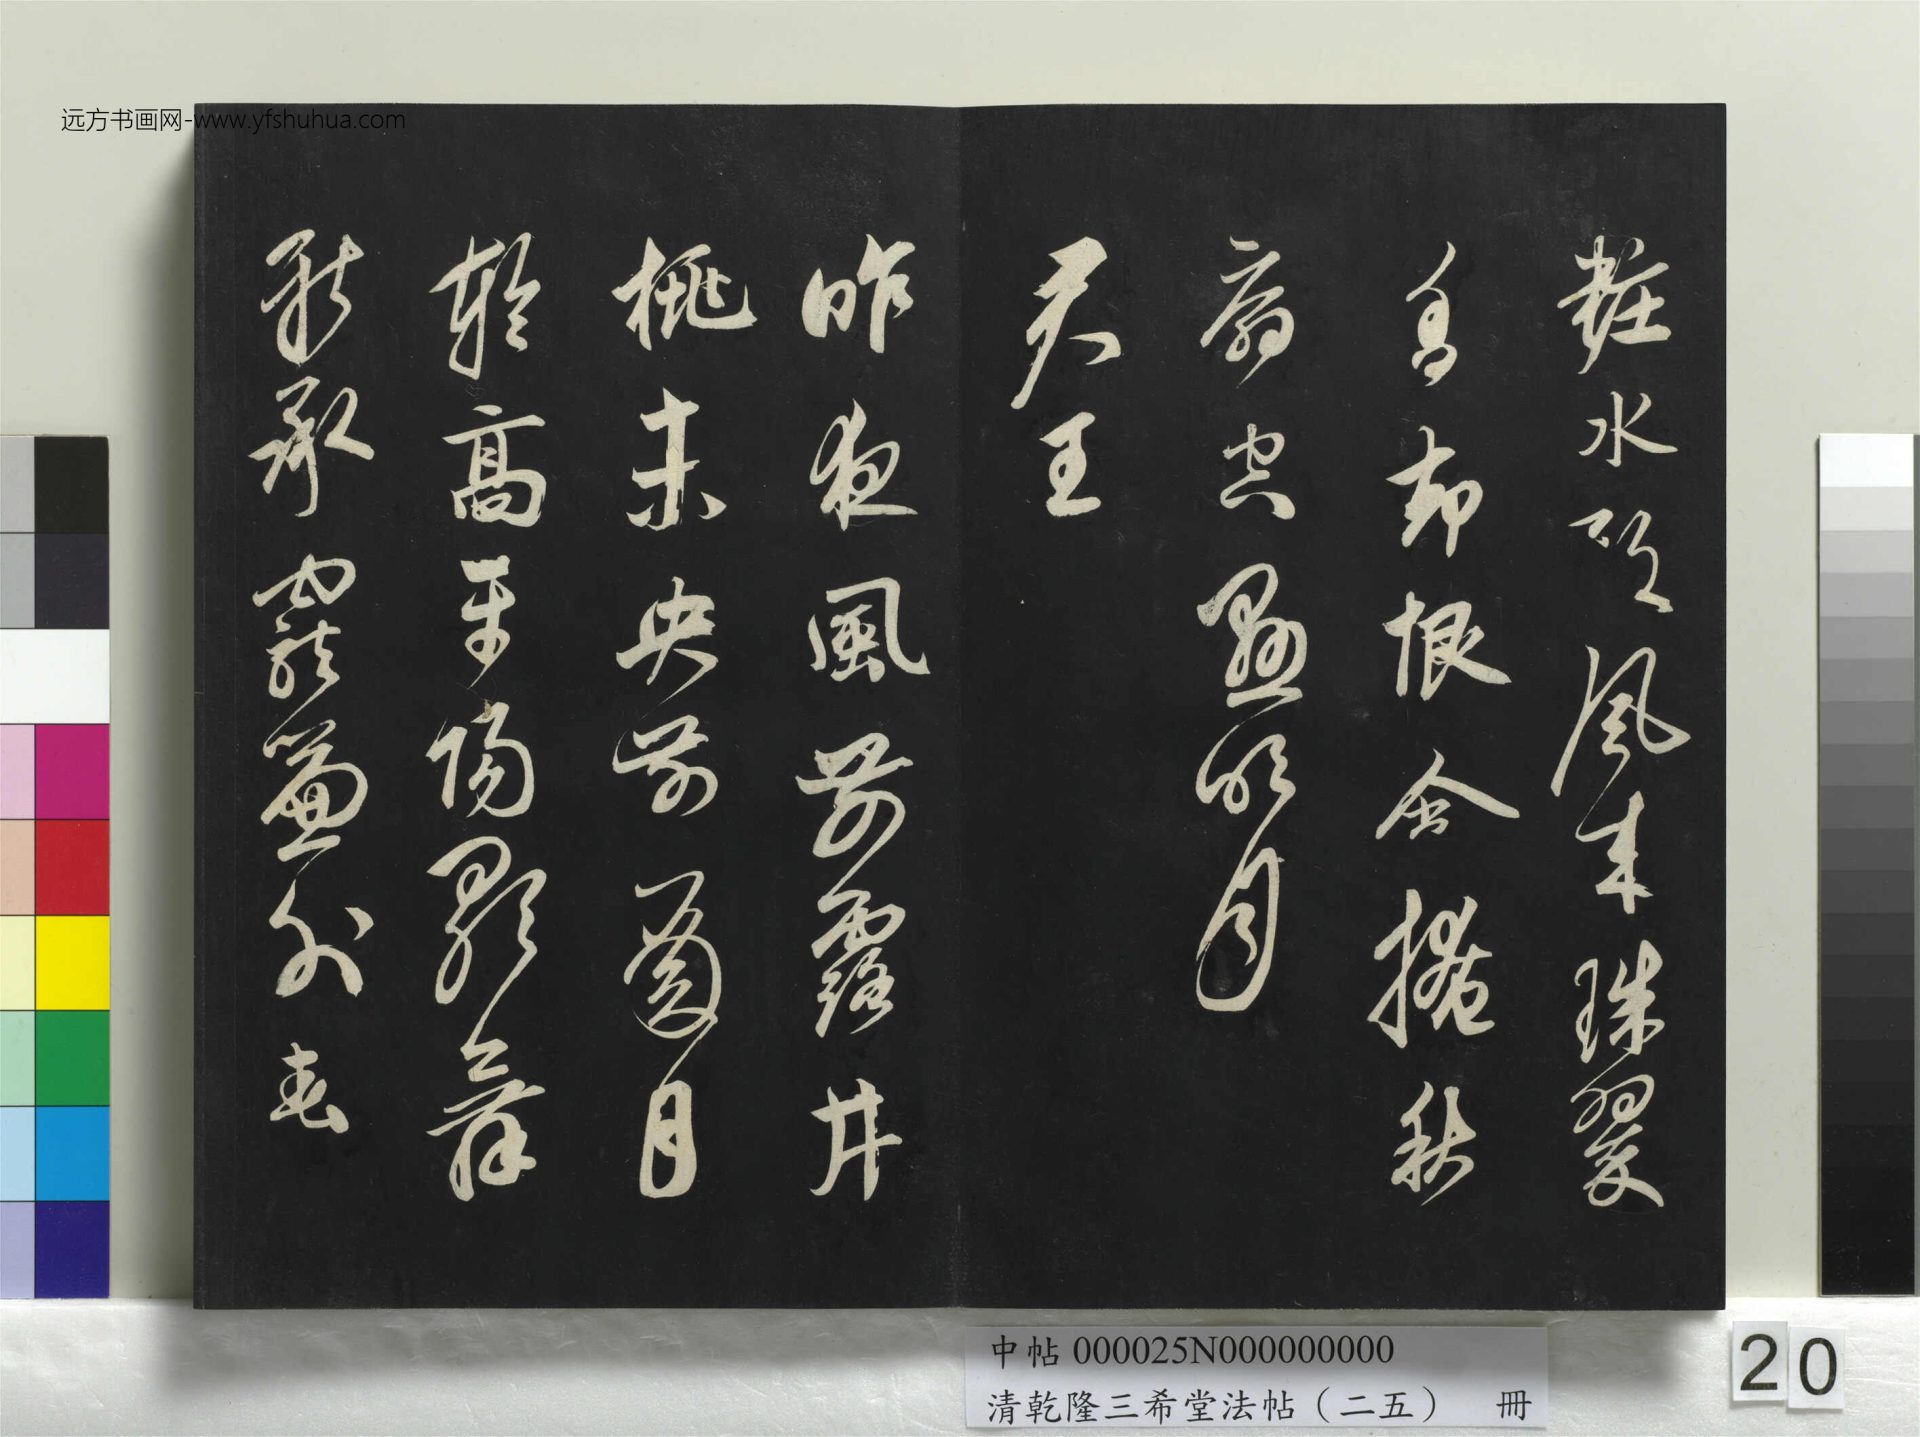 远方书画网-www.yfshuhua.com
粧水殿風來珠翠
香却恨含情掩秋
扇空懸明月
君王
昨夜風前露井
桃未央前殿月
輪高平陽歌舞
新承寵簾外春
中帖 000025N000000000
清乾隆三希堂法帖（二五） 冊
20